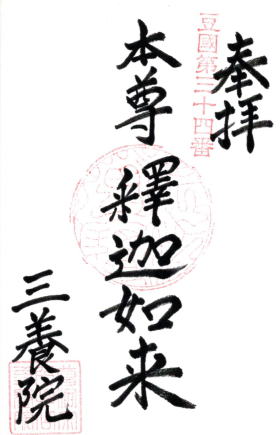 奉拝
豆國第三十四番
本尊 釋迦如来
三養院